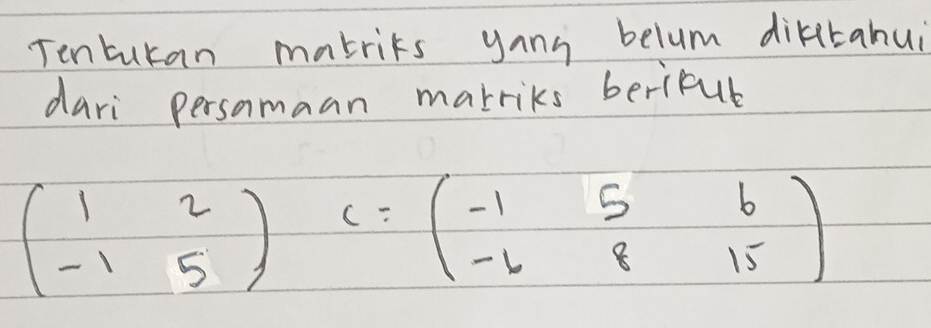 Tentukan matriks yang belum diketahui
dari persamaan matriks berikut
( 1 2 ) C = ( -1 5 6 )
( -1 5 ) ( -6 8 15 )